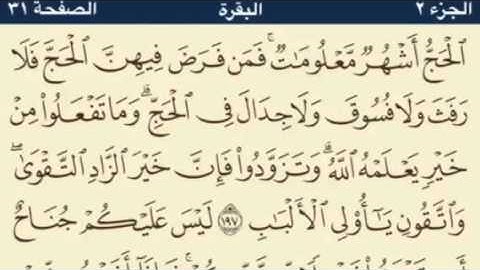 الجزء ٢ البقرة الصفحة ٣١
ٱلْحَجُّ أَشْهُرٌ مَّعْلُومَٰتٌ ۚ فَمَن فَرَضَ فِيهِنَّ ٱلْحَجَّ فَلَا
رَفَثَ وَلَا فُسُوقَ وَلَا جِدَالَ فِى ٱلْحَجِّ ۗ وَمَا تَفْعَلُوا۟ مِنْ
خَيْرٍ يَعْلَمْهُ ٱللَّهُ ۗ وَتَزَوَّدُوا۟ فَإِنَّ خَيْرَ ٱلزَّادِ ٱلتَّقْوَىٰ ۚ
وَٱتَّقُونِ يَٰٓأُو۟لِى ٱلْأَلْبَٰبِ ١٩٧ لَيْسَ عَلَيْكُمْ جُنَاحٌ